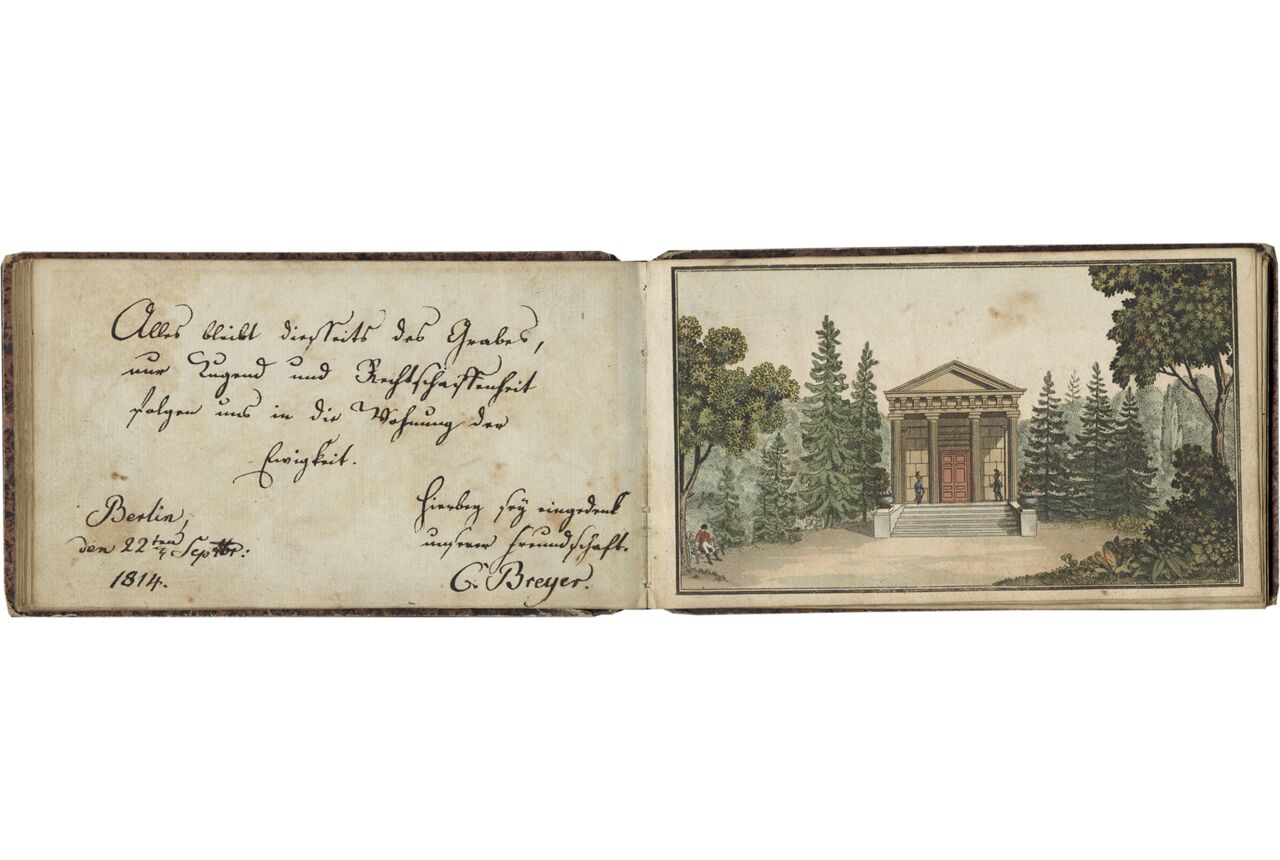 Alles bleibt diesseits des Grabes,
nur Tugend und Rechtschaffenheit
folgen uns in die Wohnung der
Ewigkeit.
Berlin,
den 22ten Septbr:
1814.
Hierbey sey eingedenk
unserer Freundschaft.
C. Breyer.